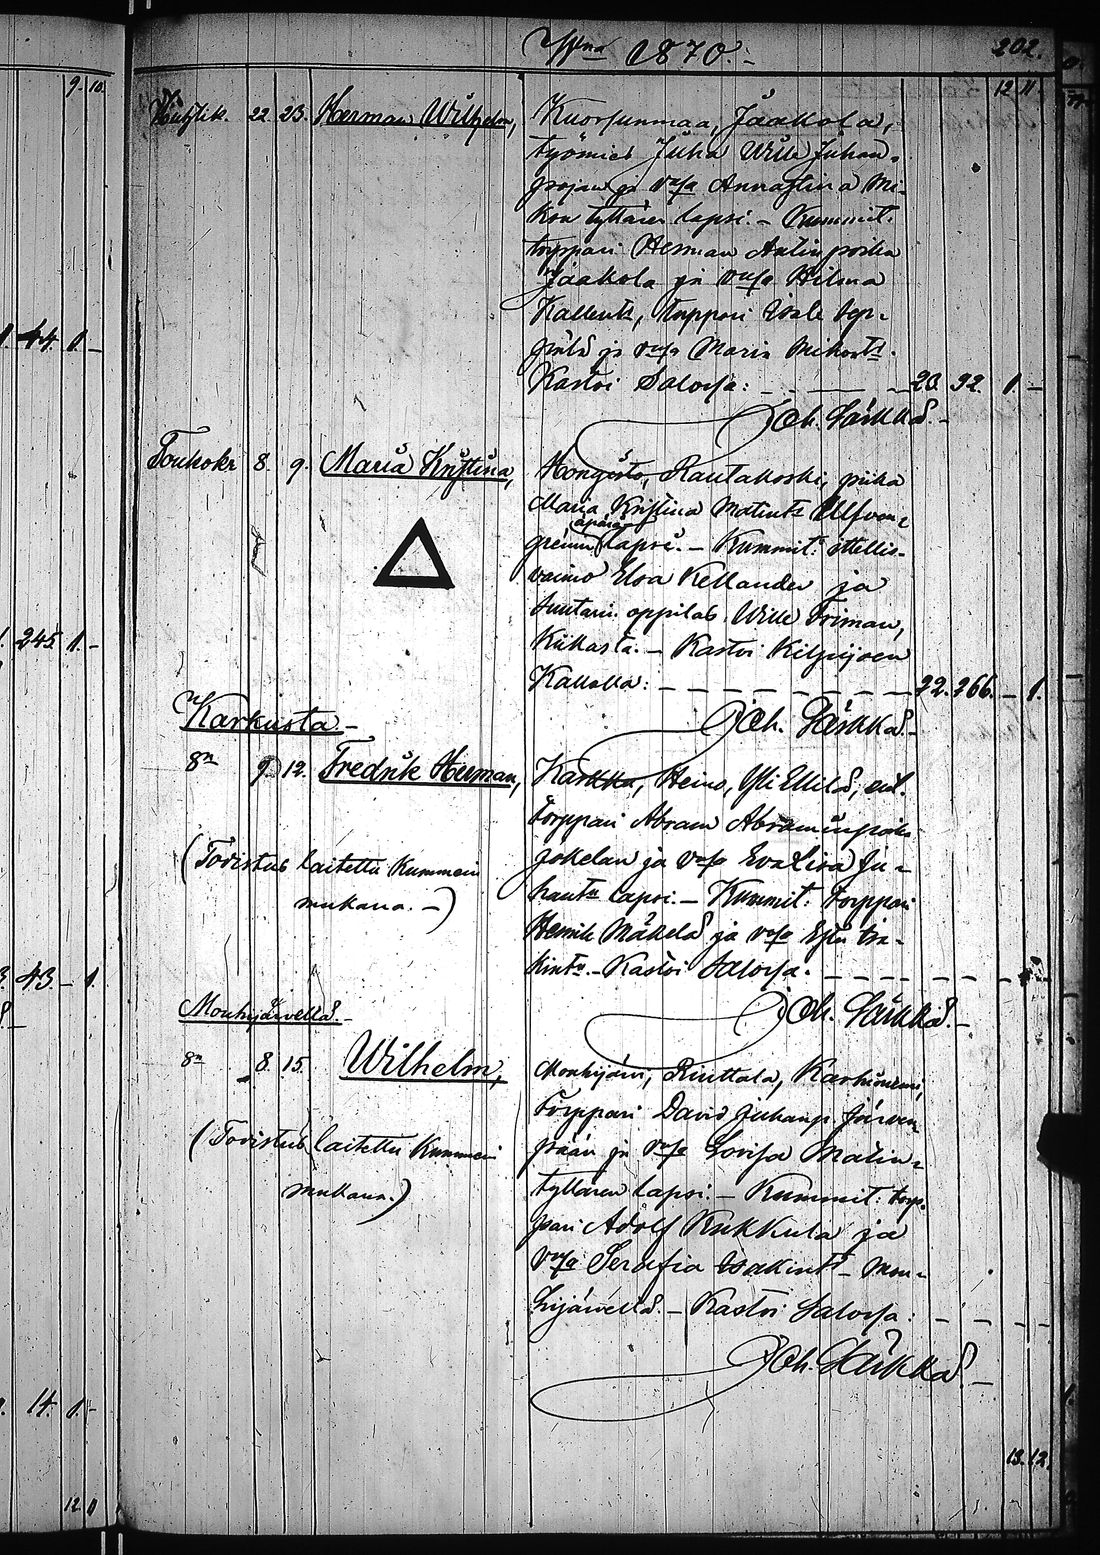 Wna 1870.
202.
9. 10.
12 11.
Huhtik. 22. 23. Herman Wilhelm, Kuorsunmaa, Jaakola,
työmies Juha Wille Juhan-
pojan ja vmo Annastina Mi-
kon tyttären lapsi. – Kummit:
torppari Herman Antinpoika
Jaakola ja vmo Hilma
Kallent.,
ja vmo Maria
Kastoi Salossa: 20. 92. 1 –
Joh. Särkkä.
44. 1. –
Toukok. 8. 9. Maria Kristina, Hongisto, Rautakoski, piika
Maria Kristina Matint. Ulfven-
grenin äpärä lapsi. – Kummit: itellis-
vaimo Eva Kellander ja
Suutari oppilas Wille Friman,
Kiikasta. – Kastoi Kilpijoen
Kallella: 22. 266. – 1.
Joh. Särkkä.
245. 1. –
Karkusta –
8n 9 12. Fredrik Herman, Karkku, Heino, Yli Ellilä, ent.
Torppari Abram Abraminpoika
Jokelan ja vmo Eva Lisa Ju-
hant. lapsi. – Kummit: Torppari
Henrik Mäkelä ja vmo
Kastoi Salossa. –
(Todistus laitettu Kummein
mukana. –)
Joh. Särkkä. –
43. – 1.
Mouhijärvellä. –
8n 8. 15. Wilhelm, Mouhijärvi, Riuttala, Karhiniemi,
Torppari David Juhanp. Järven-
pään ja vmo Lovisa Matin-
tyttären lapsi. – Kummit: torp-
pari Adolf Kukkula ja
vmo Serafia Isakint. – Mou-
hijärvellä. – Kastoi Salossa:
(Todistus laitettu Kummein
mukana.)
Joh. Särkkä. –
14. 1. –
13. 12.
12 11